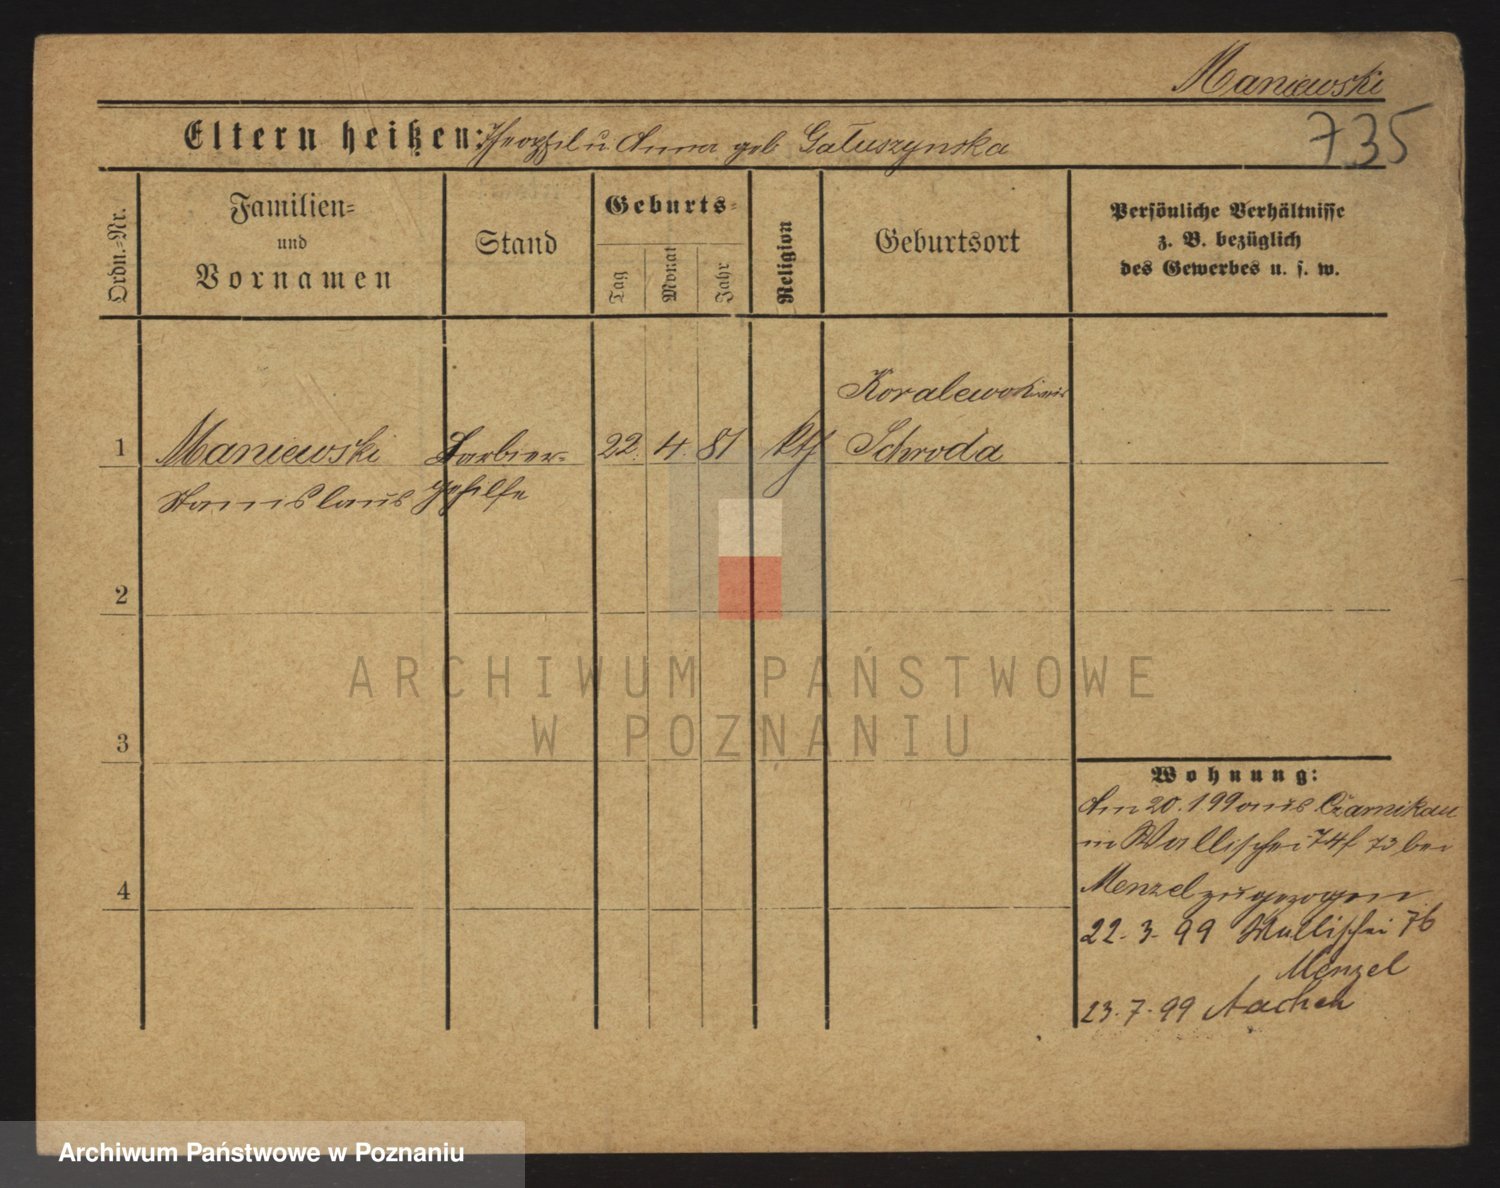 Maniewski
735
Eltern heißen: Theophil u. Anna geb Gałuszynska
Ordn.-Nr.
Familien-
und
Vornamen
Stand
Geburts-
Tag
Monat
Jahr
Religion
Geburtsort
Persönliche Verhältnisse
z. B. bezüglich
des Gewerbes u. s. w.
1
Maniewski
Stanislaus
Barbier-
gehilfe
22. 4. 81
kth
Schroda
2
3
4
Wohnung:
Am 20. 1 99 aus Czarnikau
in Wallischei 74/ 73 bei
Menzel zugezogen
22. 3. 99 Wallischei 76
Menzel
23. 7. 99 Aachen
ARCHIWUM PAŃSTWOWE
W POZNANIU
Archiwum Państwowe w Poznaniu